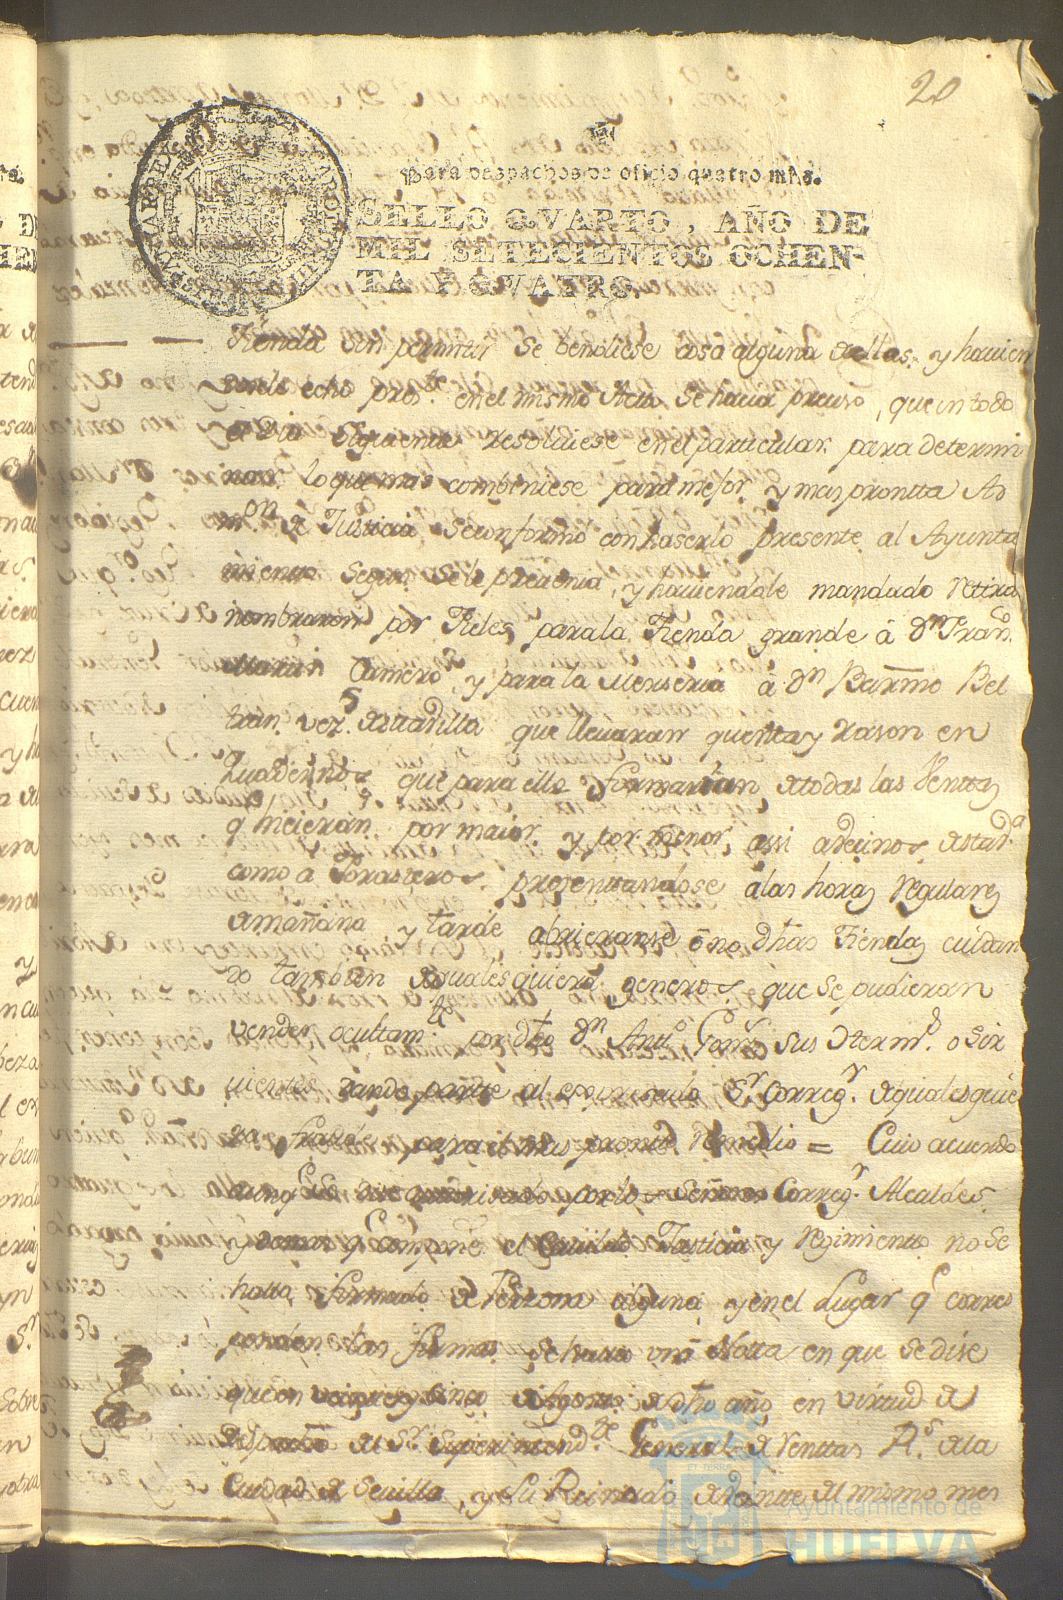 20
Para despachos de oficio quatro mrs.
SELLO QVARTO, AÑO DE
MIL SETECIENTOS OCHEN-
TA Y QVATRO.
Tienda sin permitir se bendiese cosa alguna de ellas. y havien
dosele echo press.te en el mismo Acto se hacia preciso, que en todo
el dia siguiente resolviese en el particular para determi
nar lo que mas combiniese para mejor y mas prontta Ad
m.on de Justicia se conformó con haserlo presente al Ayunta
miento segun se le prevenia, y haviendole mandado retirar
nombraron por Fieles para la Tienda grande á Dn Fran.co
Marin Camero, y para la Merseria á Dn Barmo Bel
tran vez.s de esta Villa que llevaran quenta y rason en
Quadernos que para ello formarian de todas las Ventas
q hicieran por maior y por menor, assi a vecinos de esta
como á Forasteros presenttandose a las horas regulares
de mañana y tarde abrieranse ó no dhas Tiendas cuidan
do tambien de qualesquiera generos que se pudieran
vender ocultam.te por dho Dn Antt.o Gomz sus Herm.s o Sir
vientes dando partte al expresado S.r Correg.r de qualesquie
ra fraude para el mas prontto remedio = Cuio acuerdo
aunq esta autorisado por los Señores Correg.r Alcaldes
y demas q compone el Cavildo Justicia y regimiento no se
halla firmado de Perzona alguna y en el Lugar q corres
ponden las firmas se halla una Notta en que se dise
que en veinte y sinco de Agosto de dho año en virtud de
Despacho del S.r Superintend.te General de Renttas R.s de la
Ciudad de Sevilla, y su Reinado de veinte del mismo mes
Ayuntamiento de
HUELVA